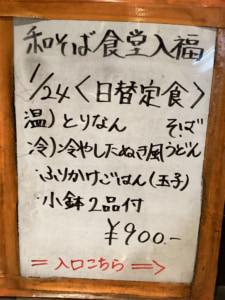 和そば食堂入福
1/24<日替定食>
温)とりなん そば
冷)冷やしたぬき風うどん
・ふりかけごはん(玉子)
・小鉢2品付
¥900.-
=入口こちら=>